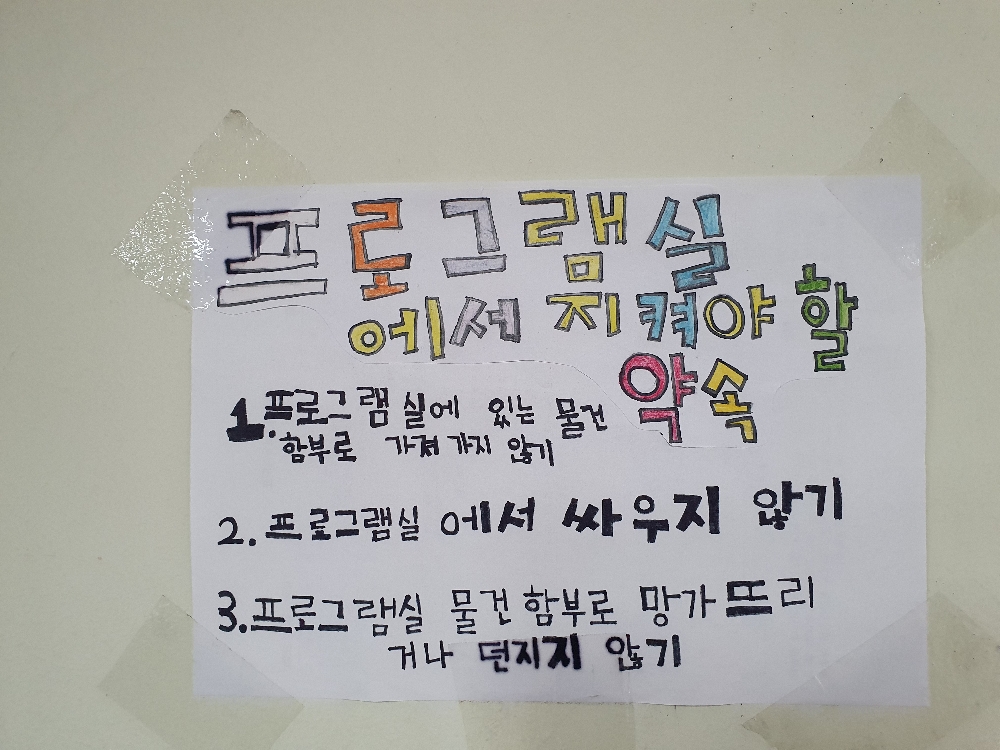 프로그램실
에서 지켜야 할
약속
1. 프로그램실에 있는 물건
함부로 가져가지 않기
2. 프로그램실에서 싸우지 않기
3. 프로그램실 물건 함부로 망가뜨리
거나 던지지 않기